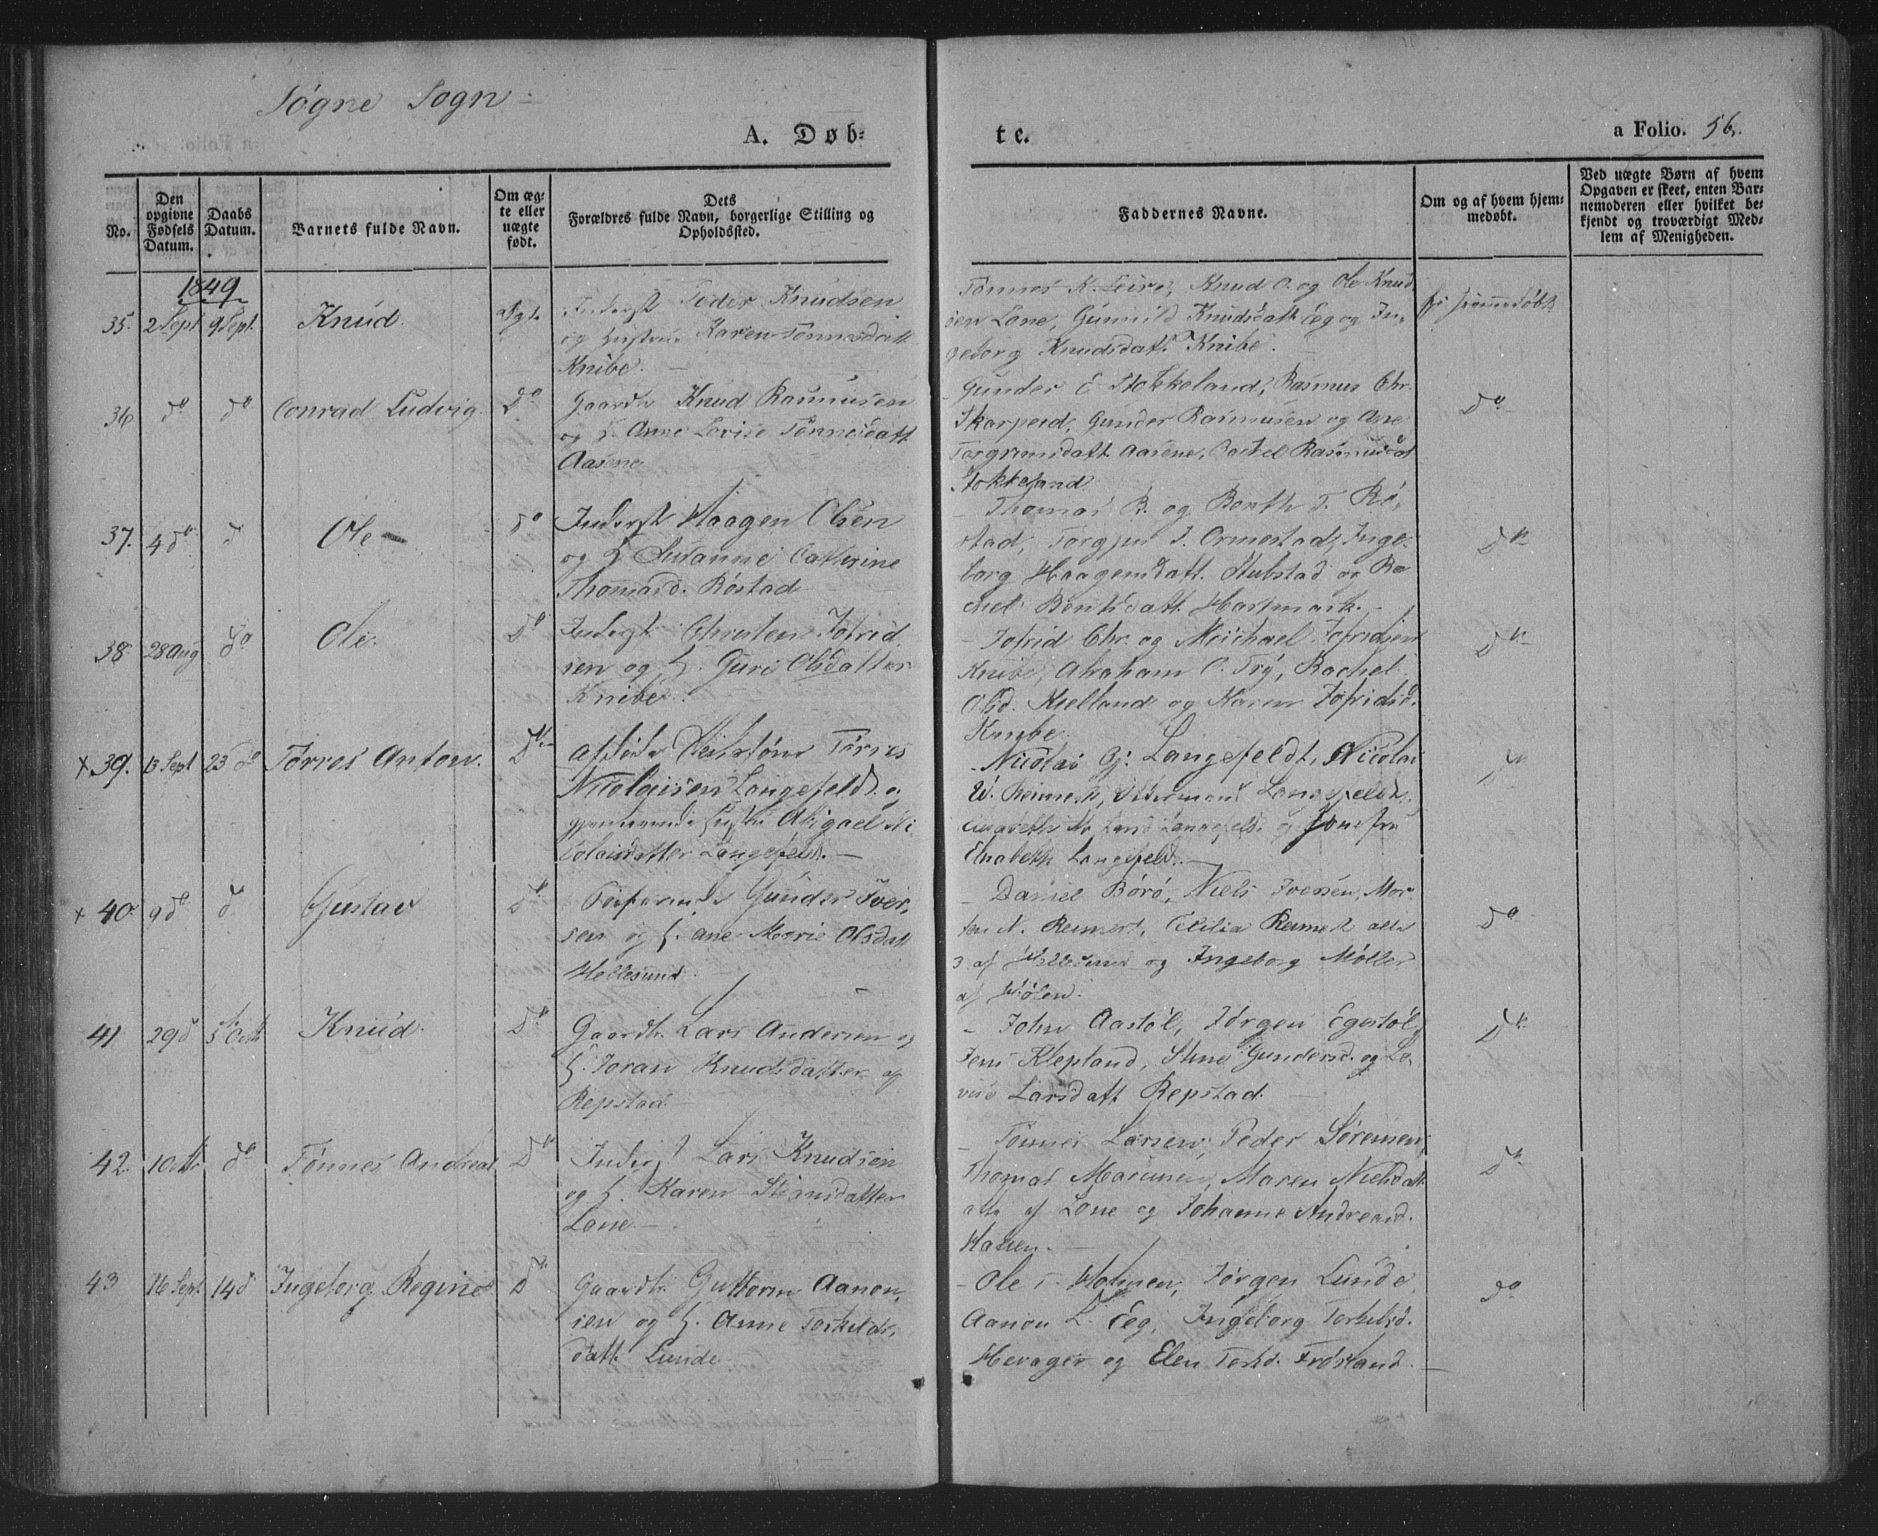 Søgne Sogn
A. Døb-
te.
a Folio. 56.
No.
Den opgivne Fødsels Datum.
Daabs Datum.
Barnets fulde Navn.
Om ægte eller uægte født.
Dets
Forældres fulde Navn, borgerlige Stilling og
Opholdssted.
Faddernes Navne.
Om og af hvem hjem-
medøbt.
Ved uægte Børn af hvem
Opgaven er skeet, enten Bar-
nemoderen eller hvilket be-
kjendt og troværdigt Med-
lem af Menigheden.
1849
35. 2 Sept 9 Sept. Knud. ægte
Inderst Peder Knudsen
og Hustrue Karen Tønnesdatt
Knibe.
Tønnes K. Leire, Knud O. og Ole Knud
sen Lone, Gunnild Knudsdatt Eeg og In-
geborg Knudsdatt Knibe.
hjemmedøbt
36 do do Conrad Ludvig. Do
Gaardbr Knud Rasmusen
og H. Anne Lovise Tønnesdatt
Aasene
Gunder E Stokkeland, Rasmus Chr.
Skarpeid, Gunder Rasmusen og Ane
Torgrimsdatt Aasene, Rasmusdat
Stokkeland
Do
37. 4 do d Ole do
Inderst Haagen Olsen
og H Susanne Cathrine
Thomasd. Røstad
Thomas B. og Benth T. Rø-
stad, Torgjus J. Ormestad, Inge-
borg Haagensdatt. Stubstad og Ra-
chel Bentsdatt Hortmark.
Do
38 28 Aug do Ole. Do
Inderst Christen Jofrid
sen og H. Guri Olsdatter
Knibe.
Jofrid Chr. og Michael Jofridsen
Knibe, Abraham O. Try, Rachel
Olsd. Kielland og Karen Jofridsd.
Knibe
Do
x 39. 13 Sept 23 do Tørres Anton. Do
Afdøde Tørres
Nicolaisen Langefeldt og
Abigael Ni
colaisdatter Langefeldt.
Nicolai G. Langefeldt, Nicolai
W. Reimert, Langefeldt,
Langefeldt og Jomfru
Elisabeth Langefeldt.
Do
x 40. 9 d d Gustav do
Gunder Iver-
sen og H. Ane Marie Olsdatt
Hellesund.
Daniel Børø, Niels Iversen, Mor-
ten N. Reimert, Cecilia Reimert alle
3 af Hellesund og Ingeborg Møller
af Høllen.
Do
41 29 d 5 Octb Knud. Do
Gaardbr. Lars Andersen og
H. Joran Knudsdatter af
Repstad
John Aastøl, Jørgen Egestøl,
Jens Klepland, Stine Gundersd. og Lo-
vise Larsdatt Repstad.
Do
42. 1 Octb do Tønnes Andreas Do
Inderst Lars Knudsen
og H. Karen Stiansdatter
Lone
Tønnes Larsen, Peder Sørensen,
Thomas Maren Nielsdatt
alle af Lone og Johanne Andreasd.
Do
43 16 Sept 14 d Ingeborg Regine Do
Gaardbr. Guttorm Aanon-
sen og H. Anne Torkilds-
datt Lunde
Ole i Holmen, Jørgen Lunde
Aanon L. Eeg, Ingeborg Torkilsd.
Hevager og Elen Torkd. Frøsland.
Do